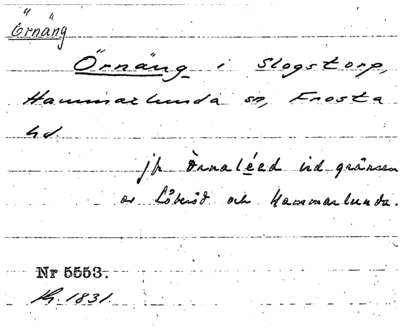 Örnäng
Örnäng i Slogstorp,
Hammarlunda sn, Frosta
hd.
jfr Örnaléed vid gränsen
av Löberöd och Hammarlunda.
Nr 5553.
1831.